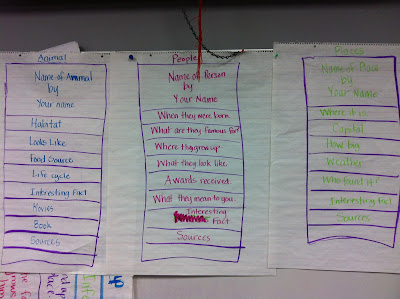 Animal
Name of Animal
by
Your name
Habitat
Looks Like
Food Source
Life cycle
Interesting Fact
Movies
Book
Sources
People
Name of Person
by
Your Name
When they were born
What are they famous for?
Where they grow up
What they look like
Awards received
What they mean to you
Interesting
Fact
Sources
Places
Name of Place
by
Your Name
Where it is
Capital
How big
Weather
Who found it?
Interesting Fact
Sources